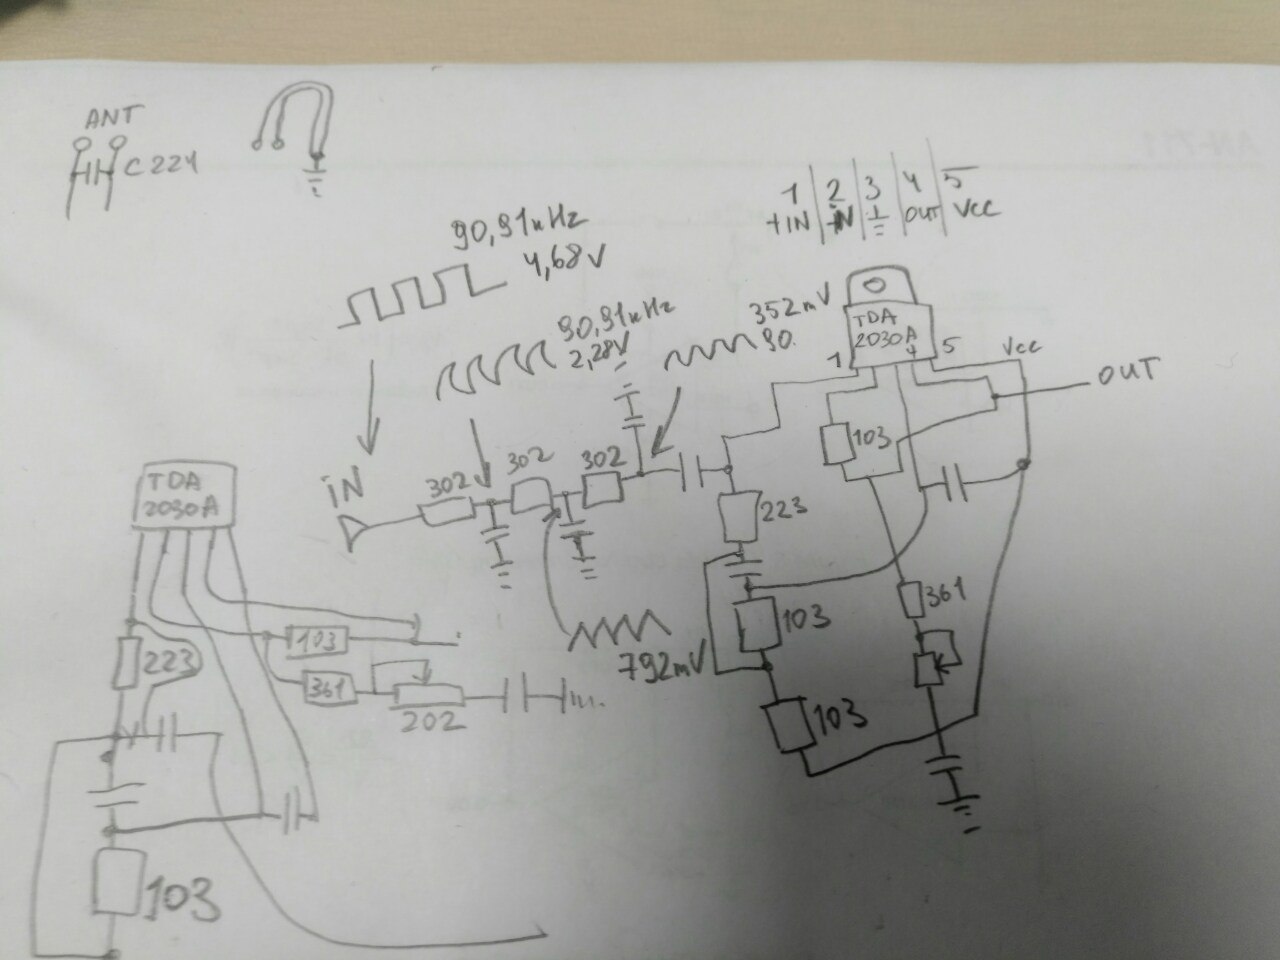 ANT
C 224
90,91кHz
4,68V
1 2 3 4 5
+IN -IN OUT VCC
90,91кHz
2,28V
352mV
90.
TDA
2030A
1 4 5 Vcc
OUT
iN
302 302 302
103
223
TDA
2030A
361
103
792mV
103
223
103
361
202
103